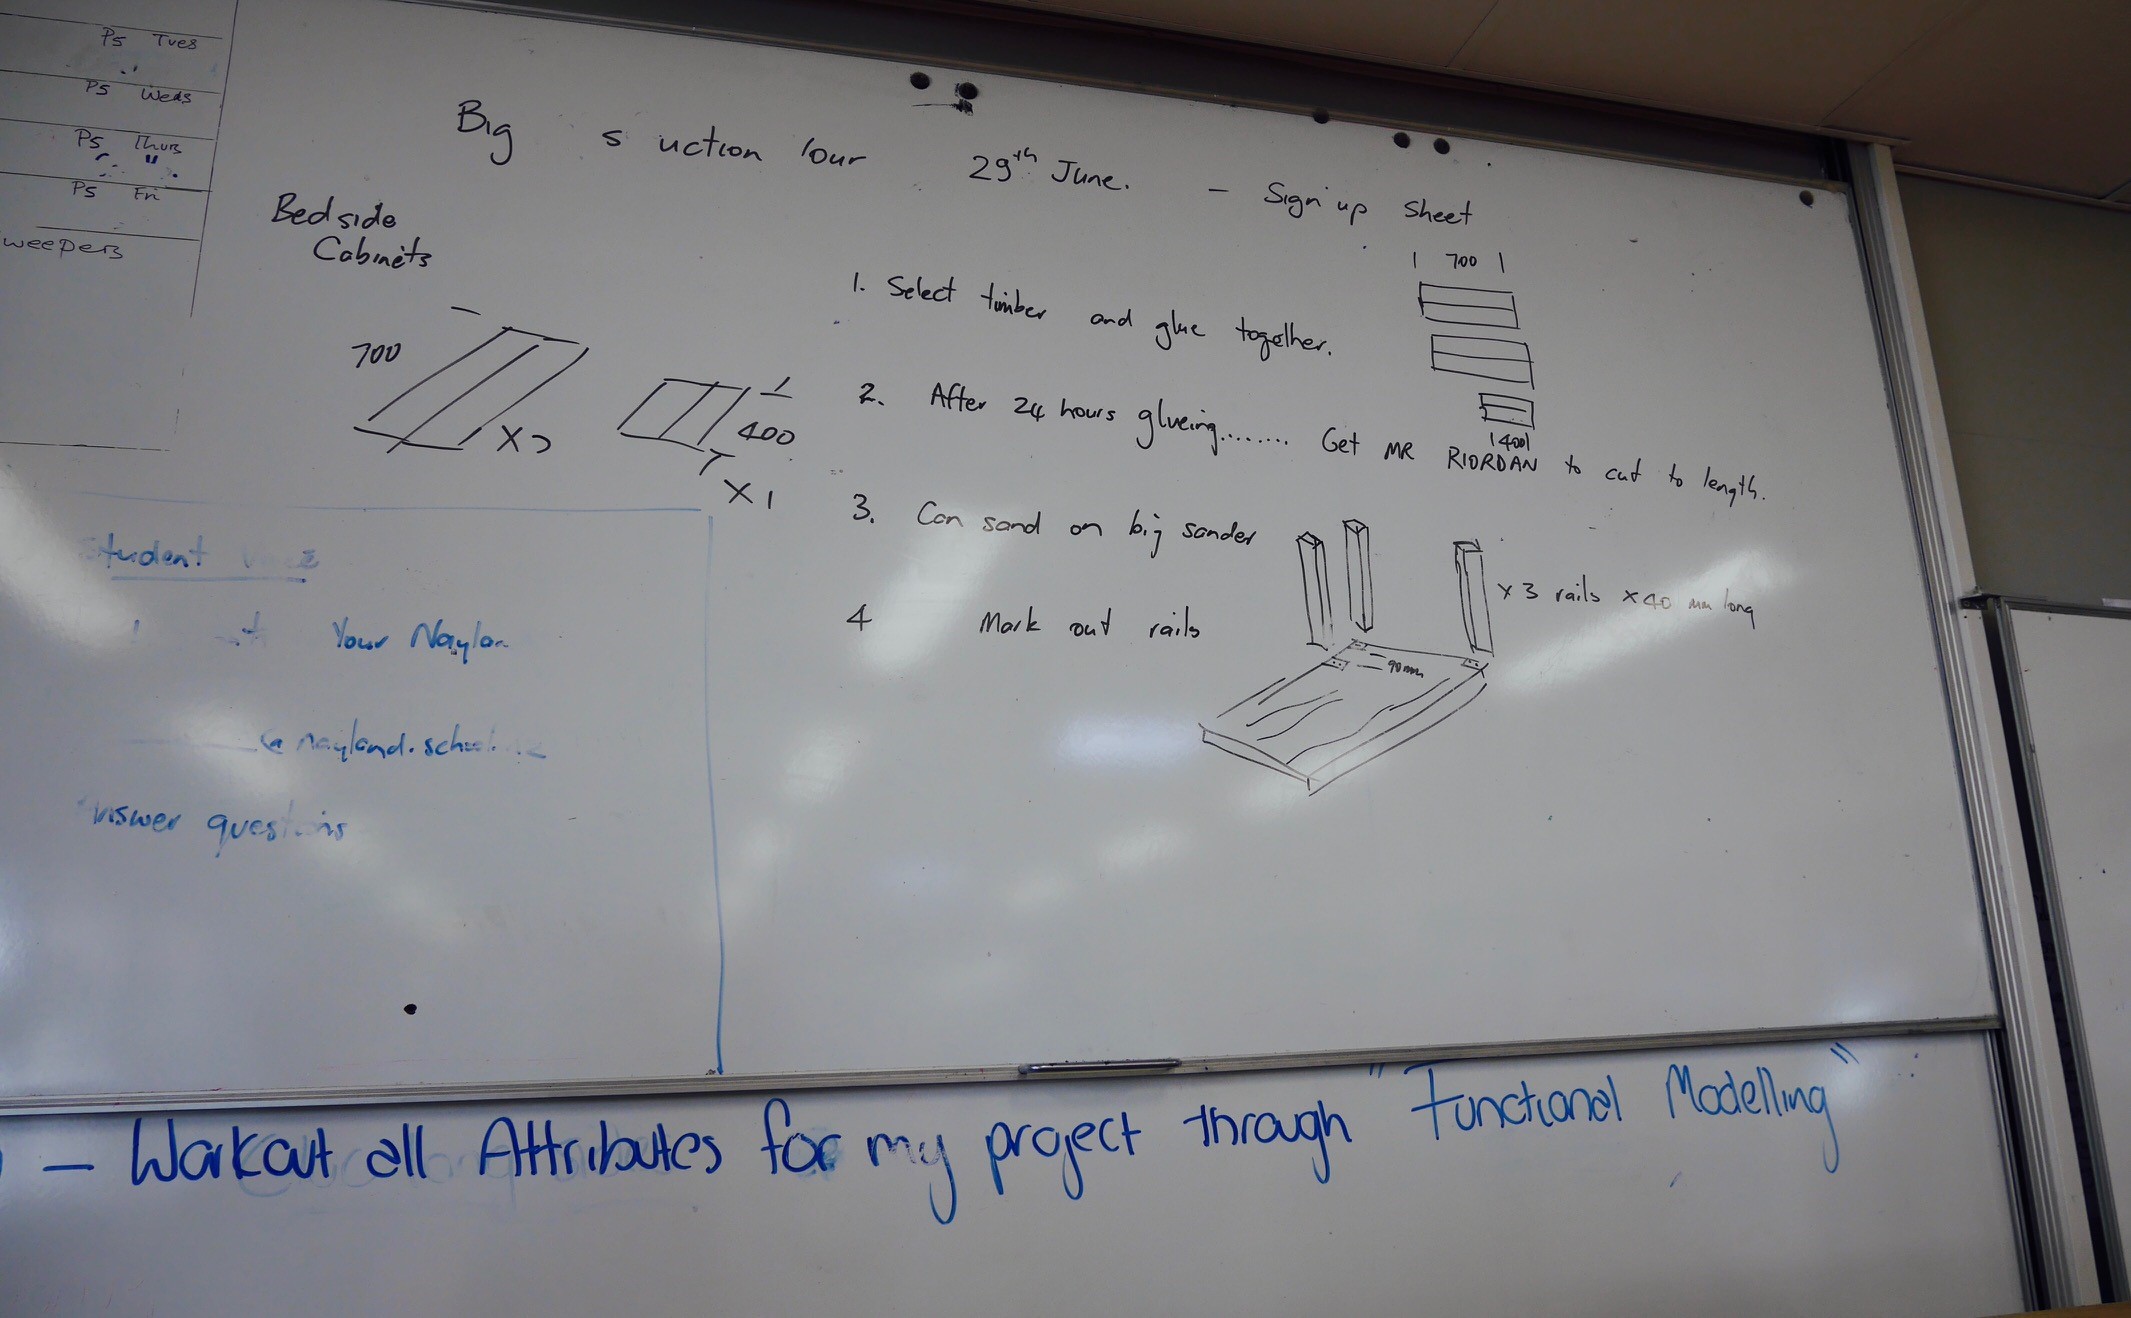 P5 Tues
P5 Weds
P5 Thurs
"
P5 Fri
weepers
Big s uction our 29th June. - Sign up Sheet
Bedside
Cabinets
700
X
400
X 1
1. Select timber and glue together.
700
2. After 24 hours glueing........ Get MR RIORDAN to cut to length.
400
3. Can sand on big sander
x 3 rails x 40 mm long
4 Mark out rails
90mm
tudent
Your Nayla
@nayland.scho
nswer questions
- Workout all Attributes for my project through "Functional Modelling"